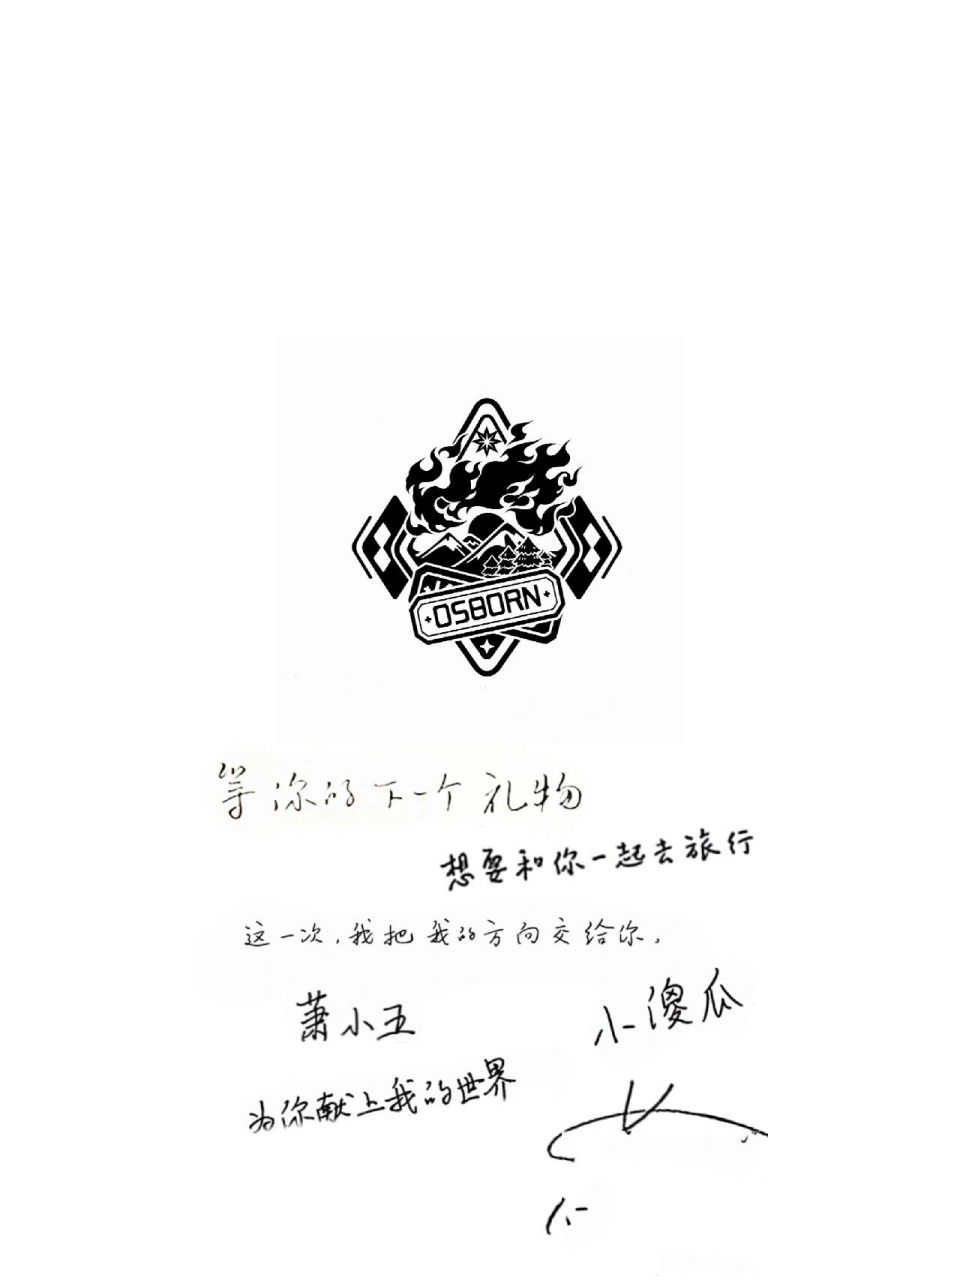 OSBORN
等你的下一个礼物
想要和你一起去旅行
这一次，我把我的方向交给你。
萧小五
小傻瓜
为你献上我的世界